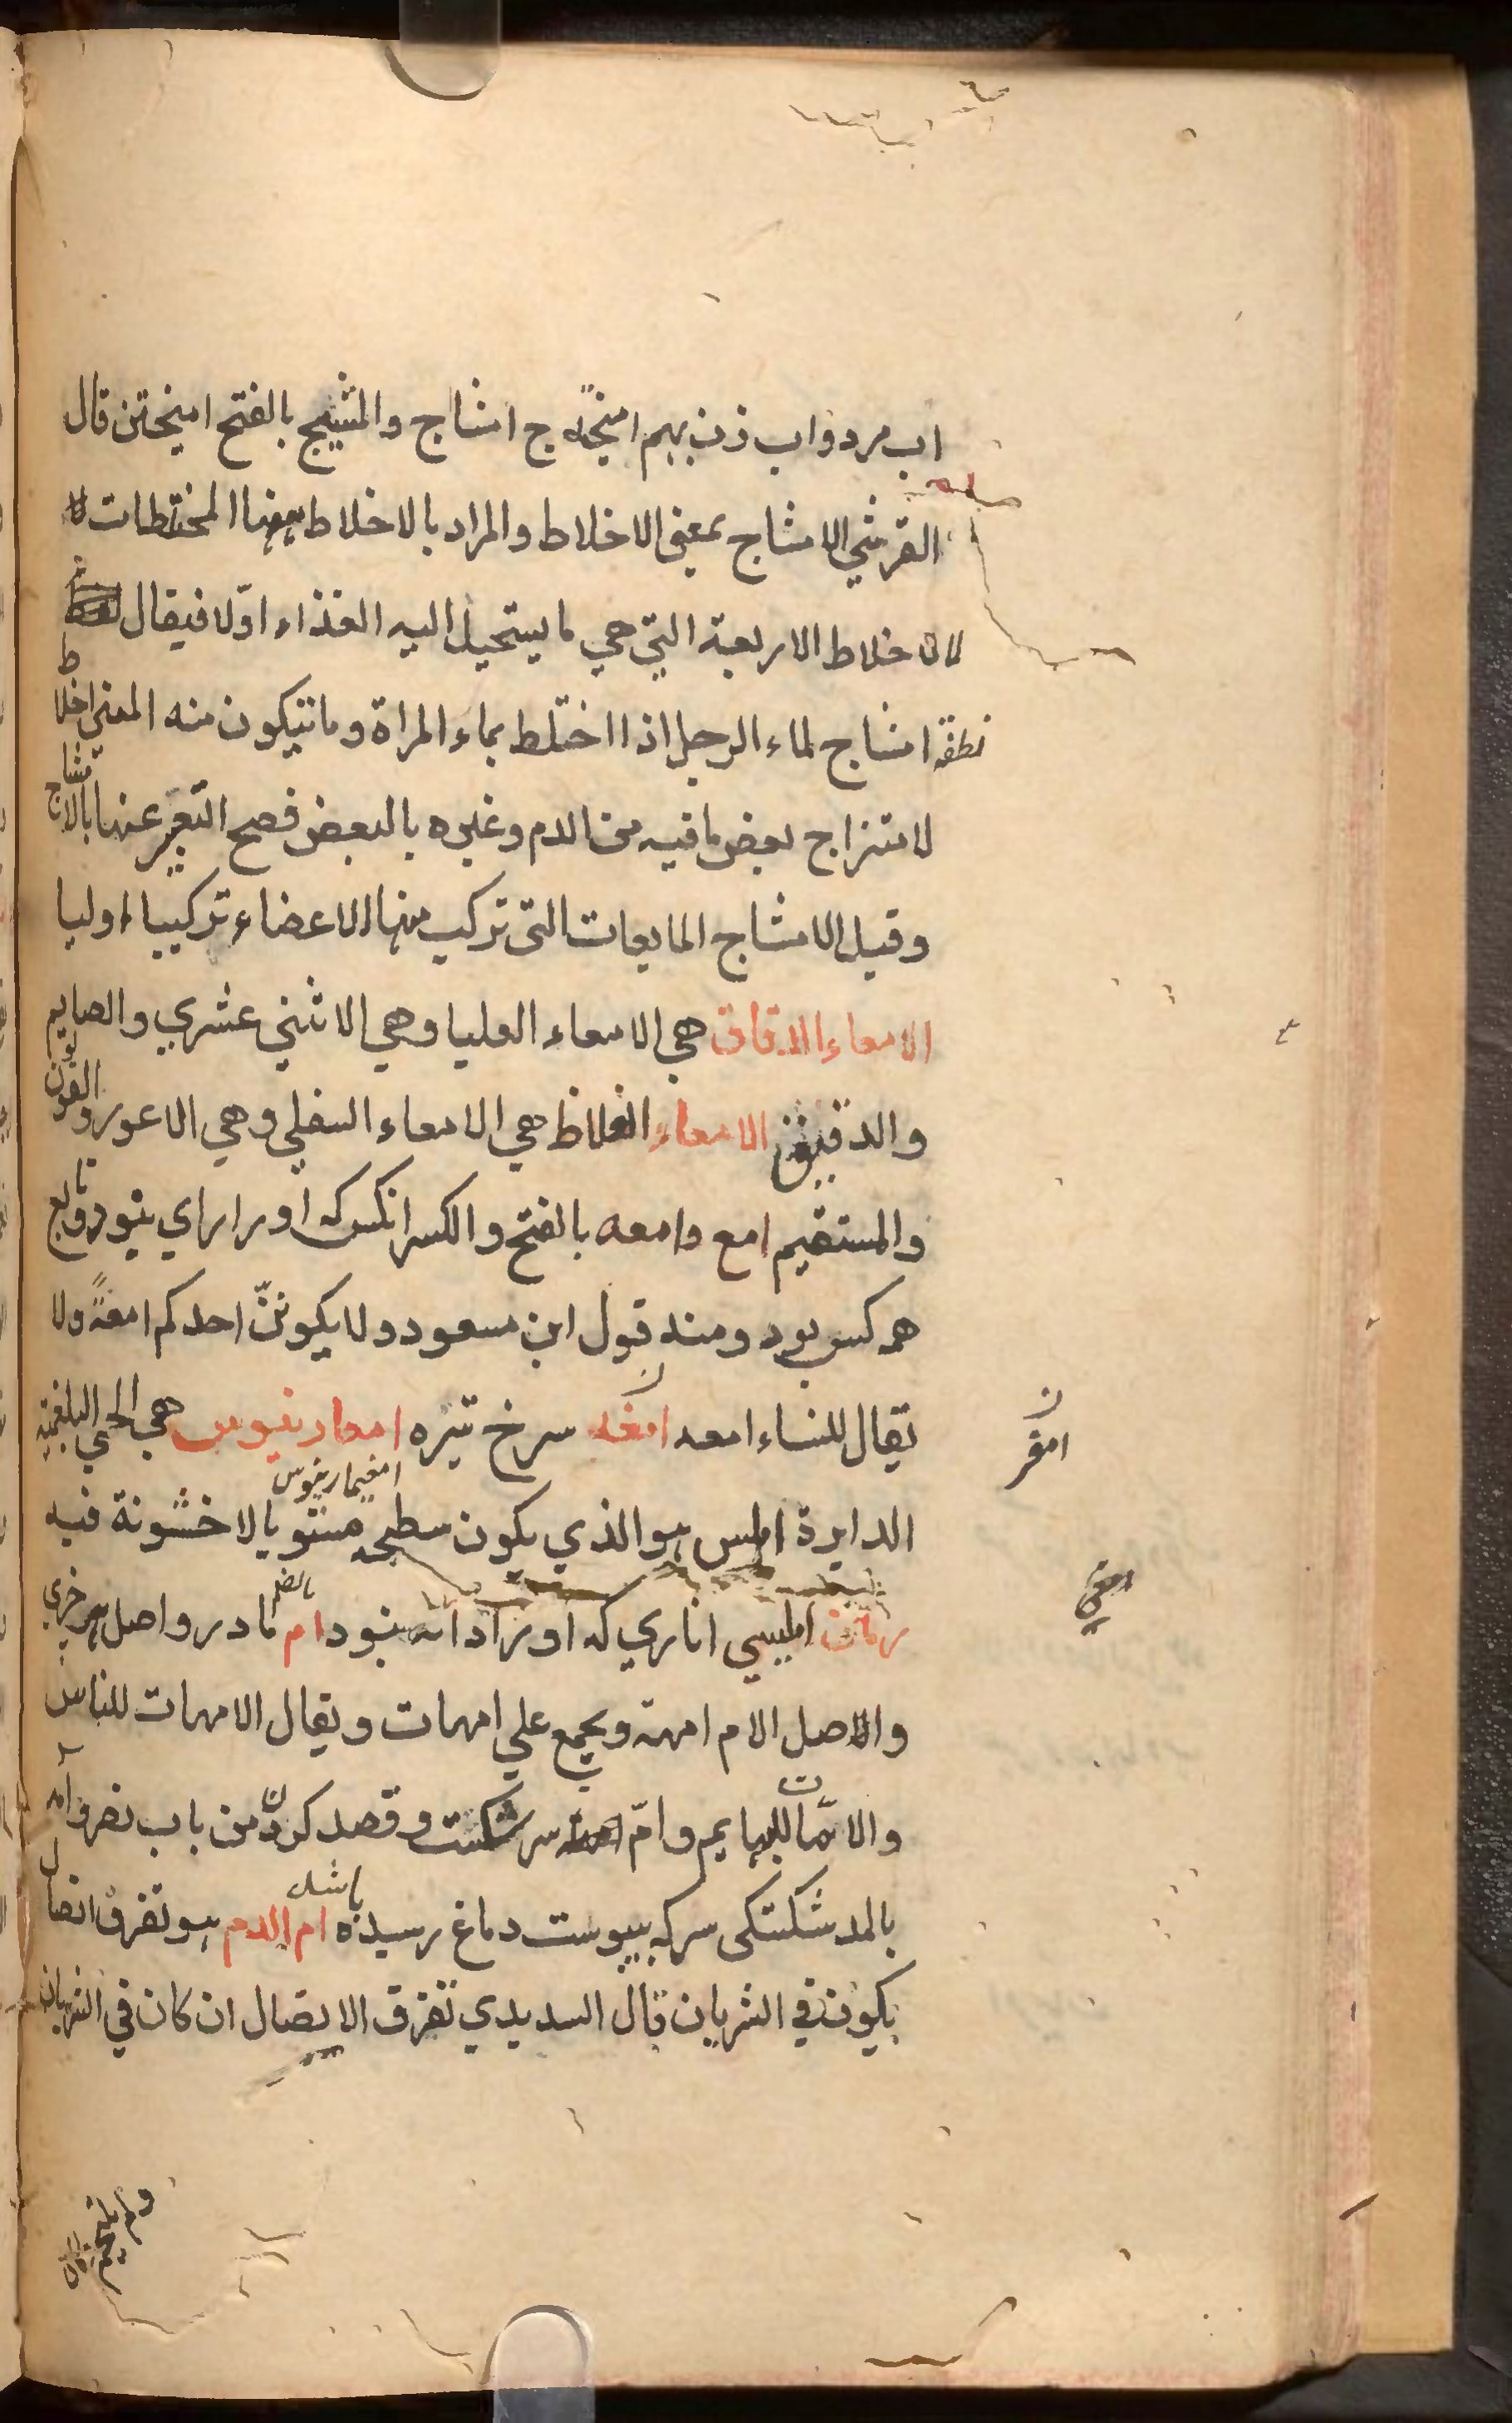 اب مرد واب زن بهم امیخته ج امشاج والمشیج بالفتح امیختن قال
القرشي الامشاج بمعنی الاخلاط والمراد بالاخلاط ههنا المختلطات لا
الاخلاط الاربعة التي هي ما يستحيل اليه الغذاء اولا فيقال
نطفة امشاج لماء الرجل اذا اختلط بماء المراة وما تتكون منه المعني اخلاط
لامتزاج بعض ما فيه من الدم وغيره بالبعض فصح التعبير عنها بالامشاج
وقيل الامشاج المايعات التي تركب منها الاعضاء تركيبا اوليا
الامعاء الدقاق هي الامعاء العليا وهي الاثني عشري والصايم
والدقيق الامعاء الغلاظ هي الامعاء السفلي وهي الاعور والقولون
والمستقيم امع وامعه بالفتح والكسر انکس که او را رای نبود وتابع
همه کس بود ومنه قول ابن مسعود ولا يكوننّ احدكم امعةً ولا
يقال للنساء امعه امغه سرخ تیره امعارينوس هي الحمي البلغمية
امفيمارينوس
الدايرة املس هو الذي يكون سطحه مستويا لا خشونة فيه
رمان امليسي اناری که او را دانه نبود ام بالضم مادر واصل هر چیزی
والاصل الام امهة ويجمع علي امهات ويقال الامهات للناس
والامّات للبهايم وامّ سر شکست وقصد کردن من باب نصر وآمه
بالمد شکستکی سر که بپوست دماغ رسیده باشد ام الدم هو تفرق اتصال
يكون في الشريان قال السديدي تفرق الاتصال ان كان في الشريان
امقر
ولم يلتحم